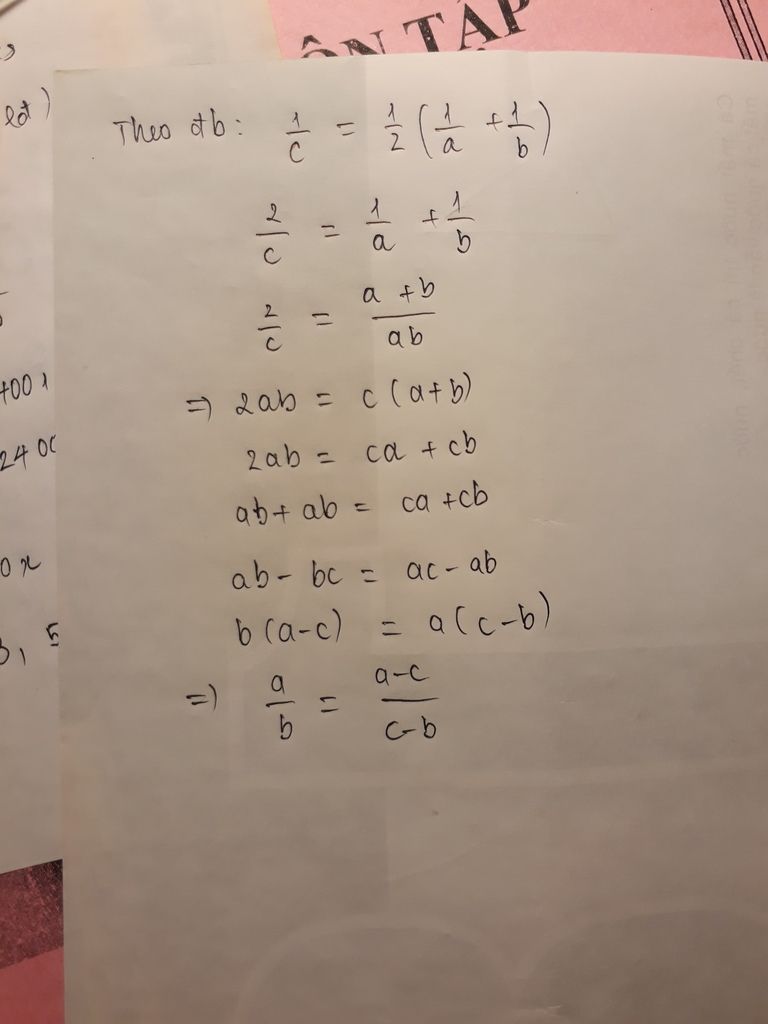 ÔN TẬP
Theo đb: 1/c = 1/2 (1/a + 1/b)
2/c = 1/a + 1/b
2/c = a + b / ab
=) 2ab = c (a+b)
2ab = ca + cb
ab + ab = ca + cb
ab - bc = ac - ab
b (a-c) = a (c-b)
=) a/b = a-c / c-b